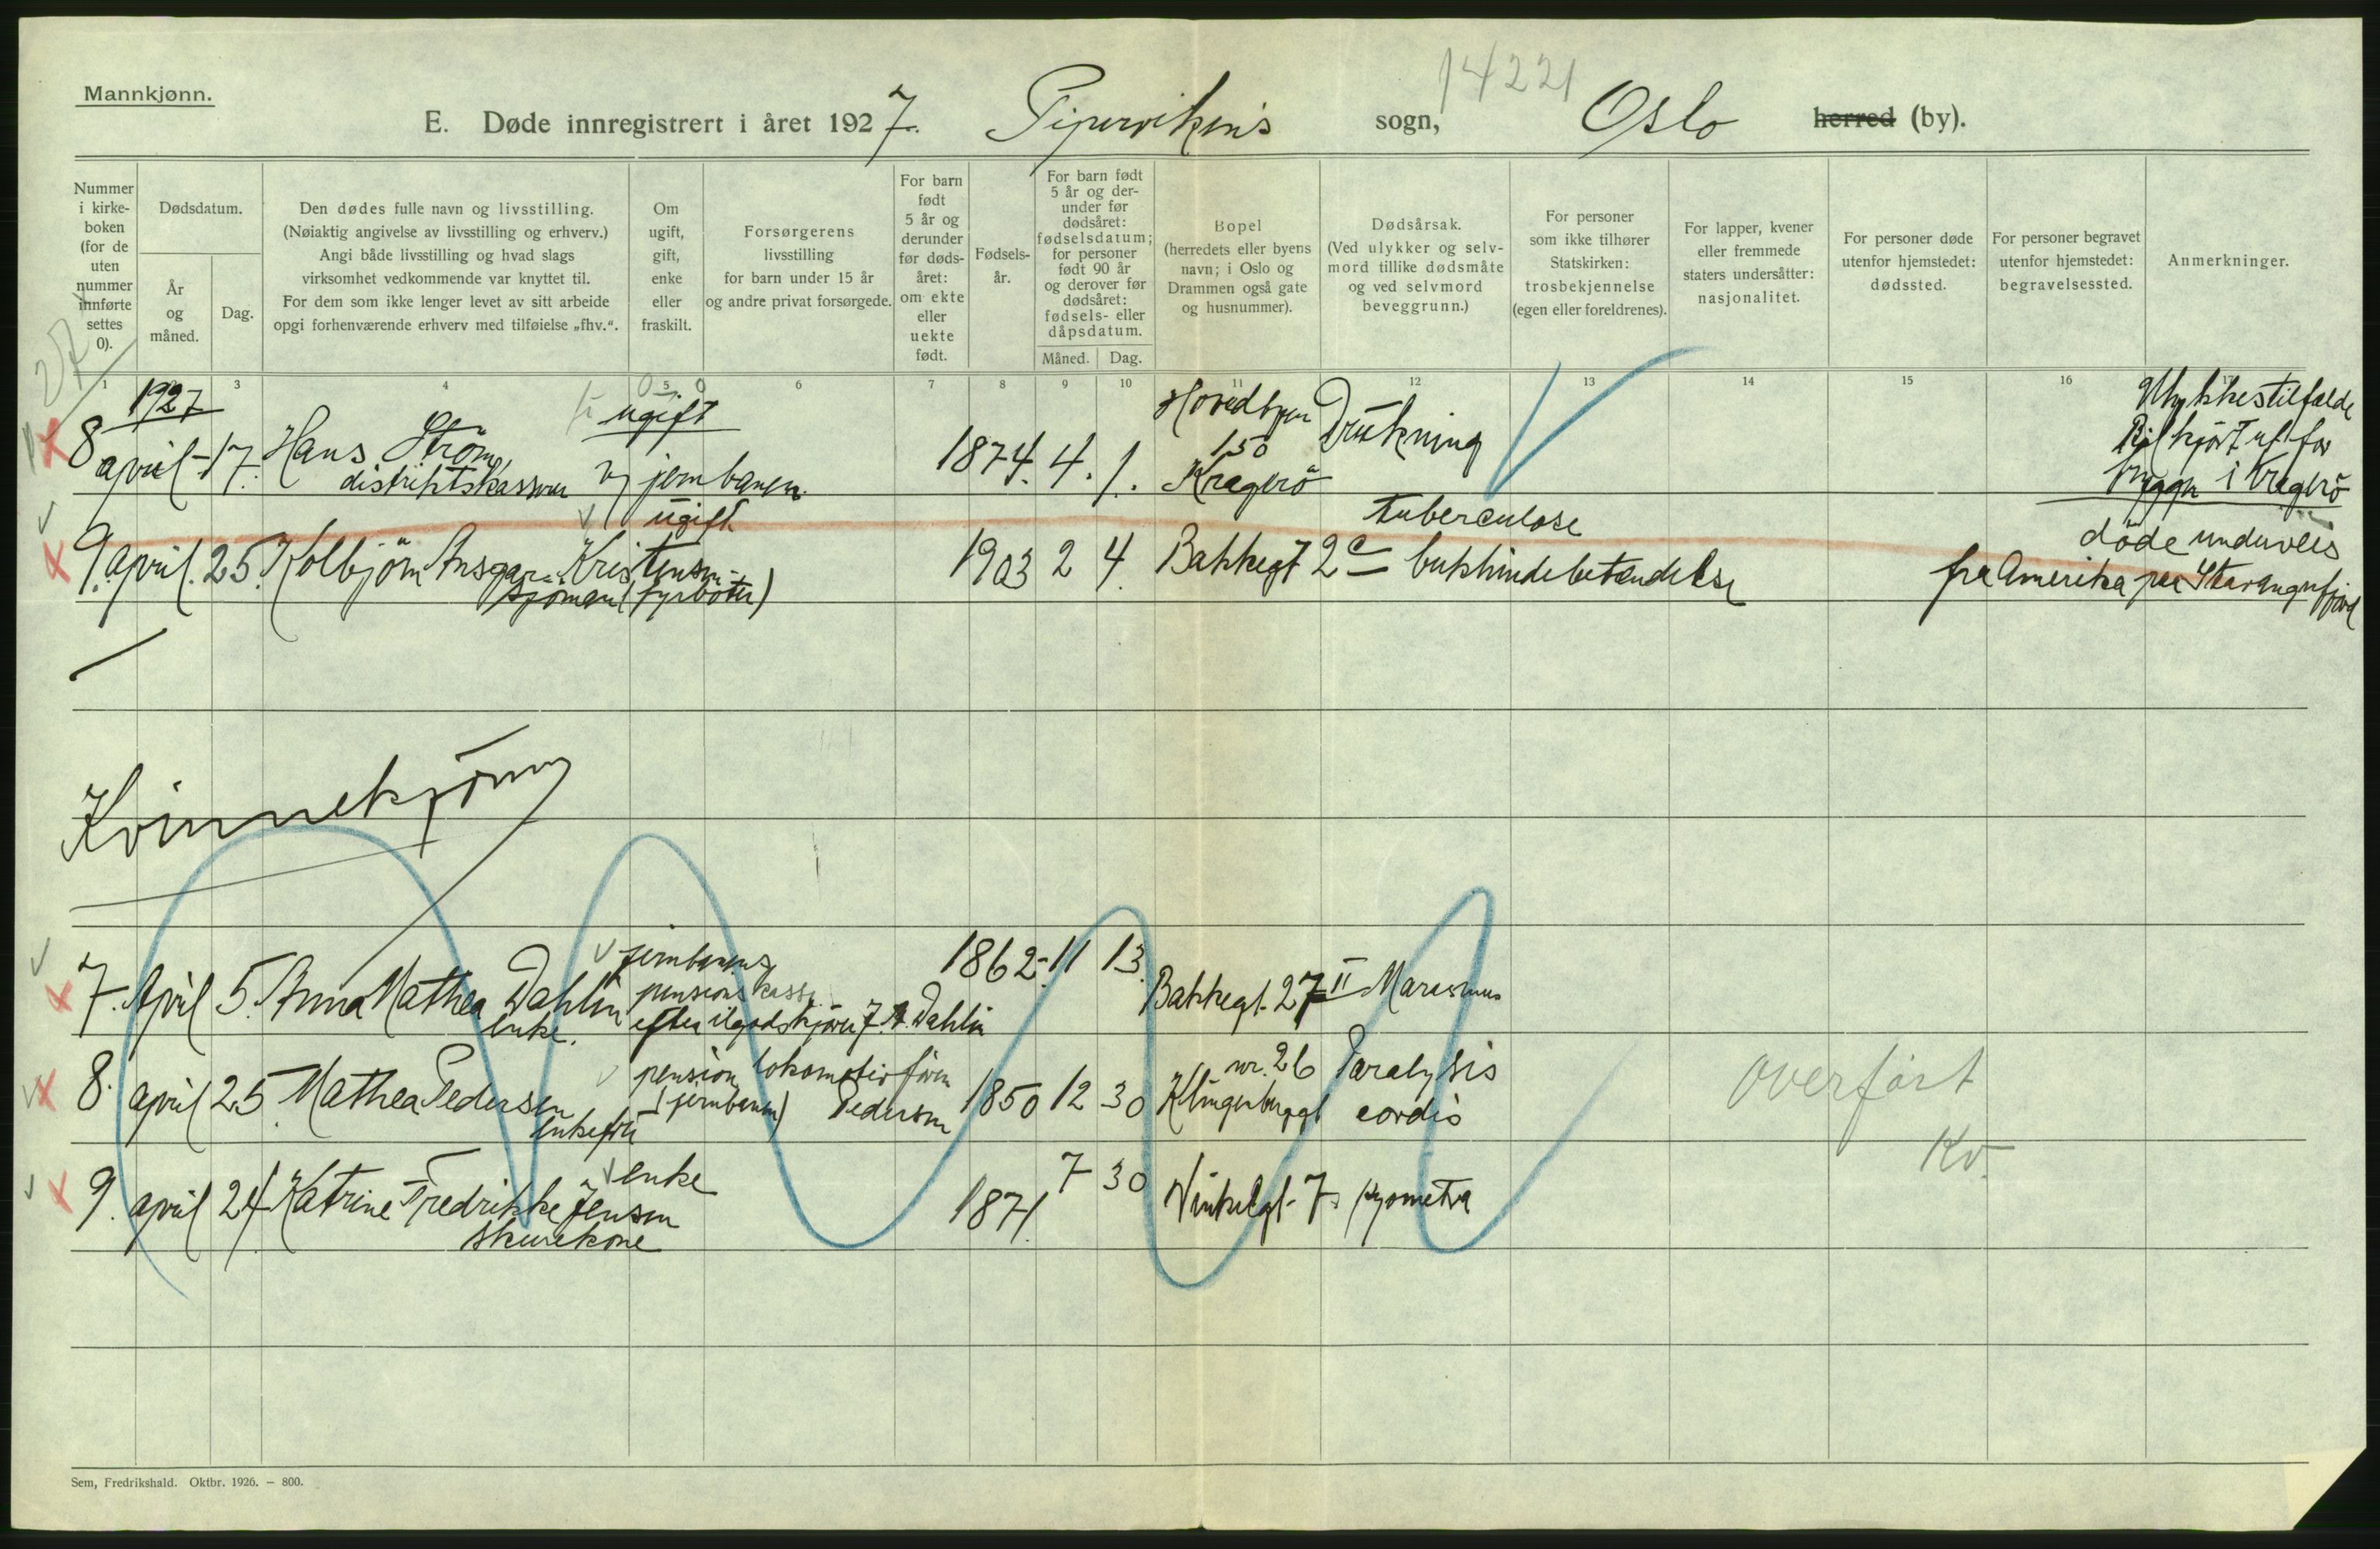 Mannkjønn.
14221
E. Døde innregistrert i året 1927. Pipervikens sogn, Oslo herred (by).
Nummer i kirke- boken (for de uten nummer innførte settes 0).
Dødsdatum.
År og måned.
Dag.
Den dødes fulle navn og livsstilling.
(Nøiaktig angivelse av livsstilling og erhverv.)
Angi både livsstilling og hvad slags
virksomhet vedkommende var knyttet til.
For dem som ikke lenger levet av sitt arbeide
opgi forhenværende erhverv med tilføielse „fhv.“.
Om ugift, gift, enke eller fraskilt.
Forsørgerens
livsstilling
for barn under 15 år
og andre privat forsørgede.
For barn født 5 år og derunder før døds- året: om ekte eller uekte født.
Fødsels- år.
For barn født 5 år og der- under før dødsåret: fødselsdatum; for personer født 90 år og derover før dødsåret: fødsels- eller dåpsdatum.
Måned. Dag.
Bopel
(herredets eller byens
navn; i Oslo og
Drammen også gate
og husnummer).
Dødsårsak.
(Ved ulykker og selv-
mord tillike dødsmåte
og ved selvmord
beveggrunn.)
For personer
som ikke tilhører
Statskirken:
trosbekjennelse
(egen eller foreldrenes).
For lapper, kvener
eller fremmede
staters undersåtter:
nasjonalitet.
For personer døde
utenfor hjemstedet:
dødssted.
For personer begravet
utenfor hjemstedet:
begravelsessted.
Anmerkninger.
27
1 3 4 5 6 7 8 9 10 11 12 13 14 15 16
1927
8 april - 17. Hans Ström, ugift 1874. 4. 1. Hovedbyen 150 Kragerö Drukning
distriktskasserer v/ jernbanen.
Ulykkestilfælde
Bil kjört ut for
brygga i Kragerö
9. april. 25. Kolbjörn Ansgar Kristensen ugift 1903 2 4. Bakkegt 2c tuberculose bukhindebetændelse
sjömand (fyrböter)
döde underveis
fra Amerika paa Stavangerfjord
Kvinnekjönn
7. April 5. Anna Mathea Dahlin jernbanens pensionskasse 1862 - 11 13. Bakkegt. 27 II Marasmus
enke. efter ilgodskjörer J. A. Dahlin
8. april 25. Mathea Pedersen pension lokomotivförer (jernbanen) Pedersen 1850 12 30 Klingenberggt nr. 26 Paralysis cordis
enkefru
overført
Kv.
9. april 24. Katrine Fredrikke Jensen enke 1871. 7 30 Vinkelgt. 7 Pyometra
skurekone
Sem, Fredrikshald. Oktbr. 1926. — 800.